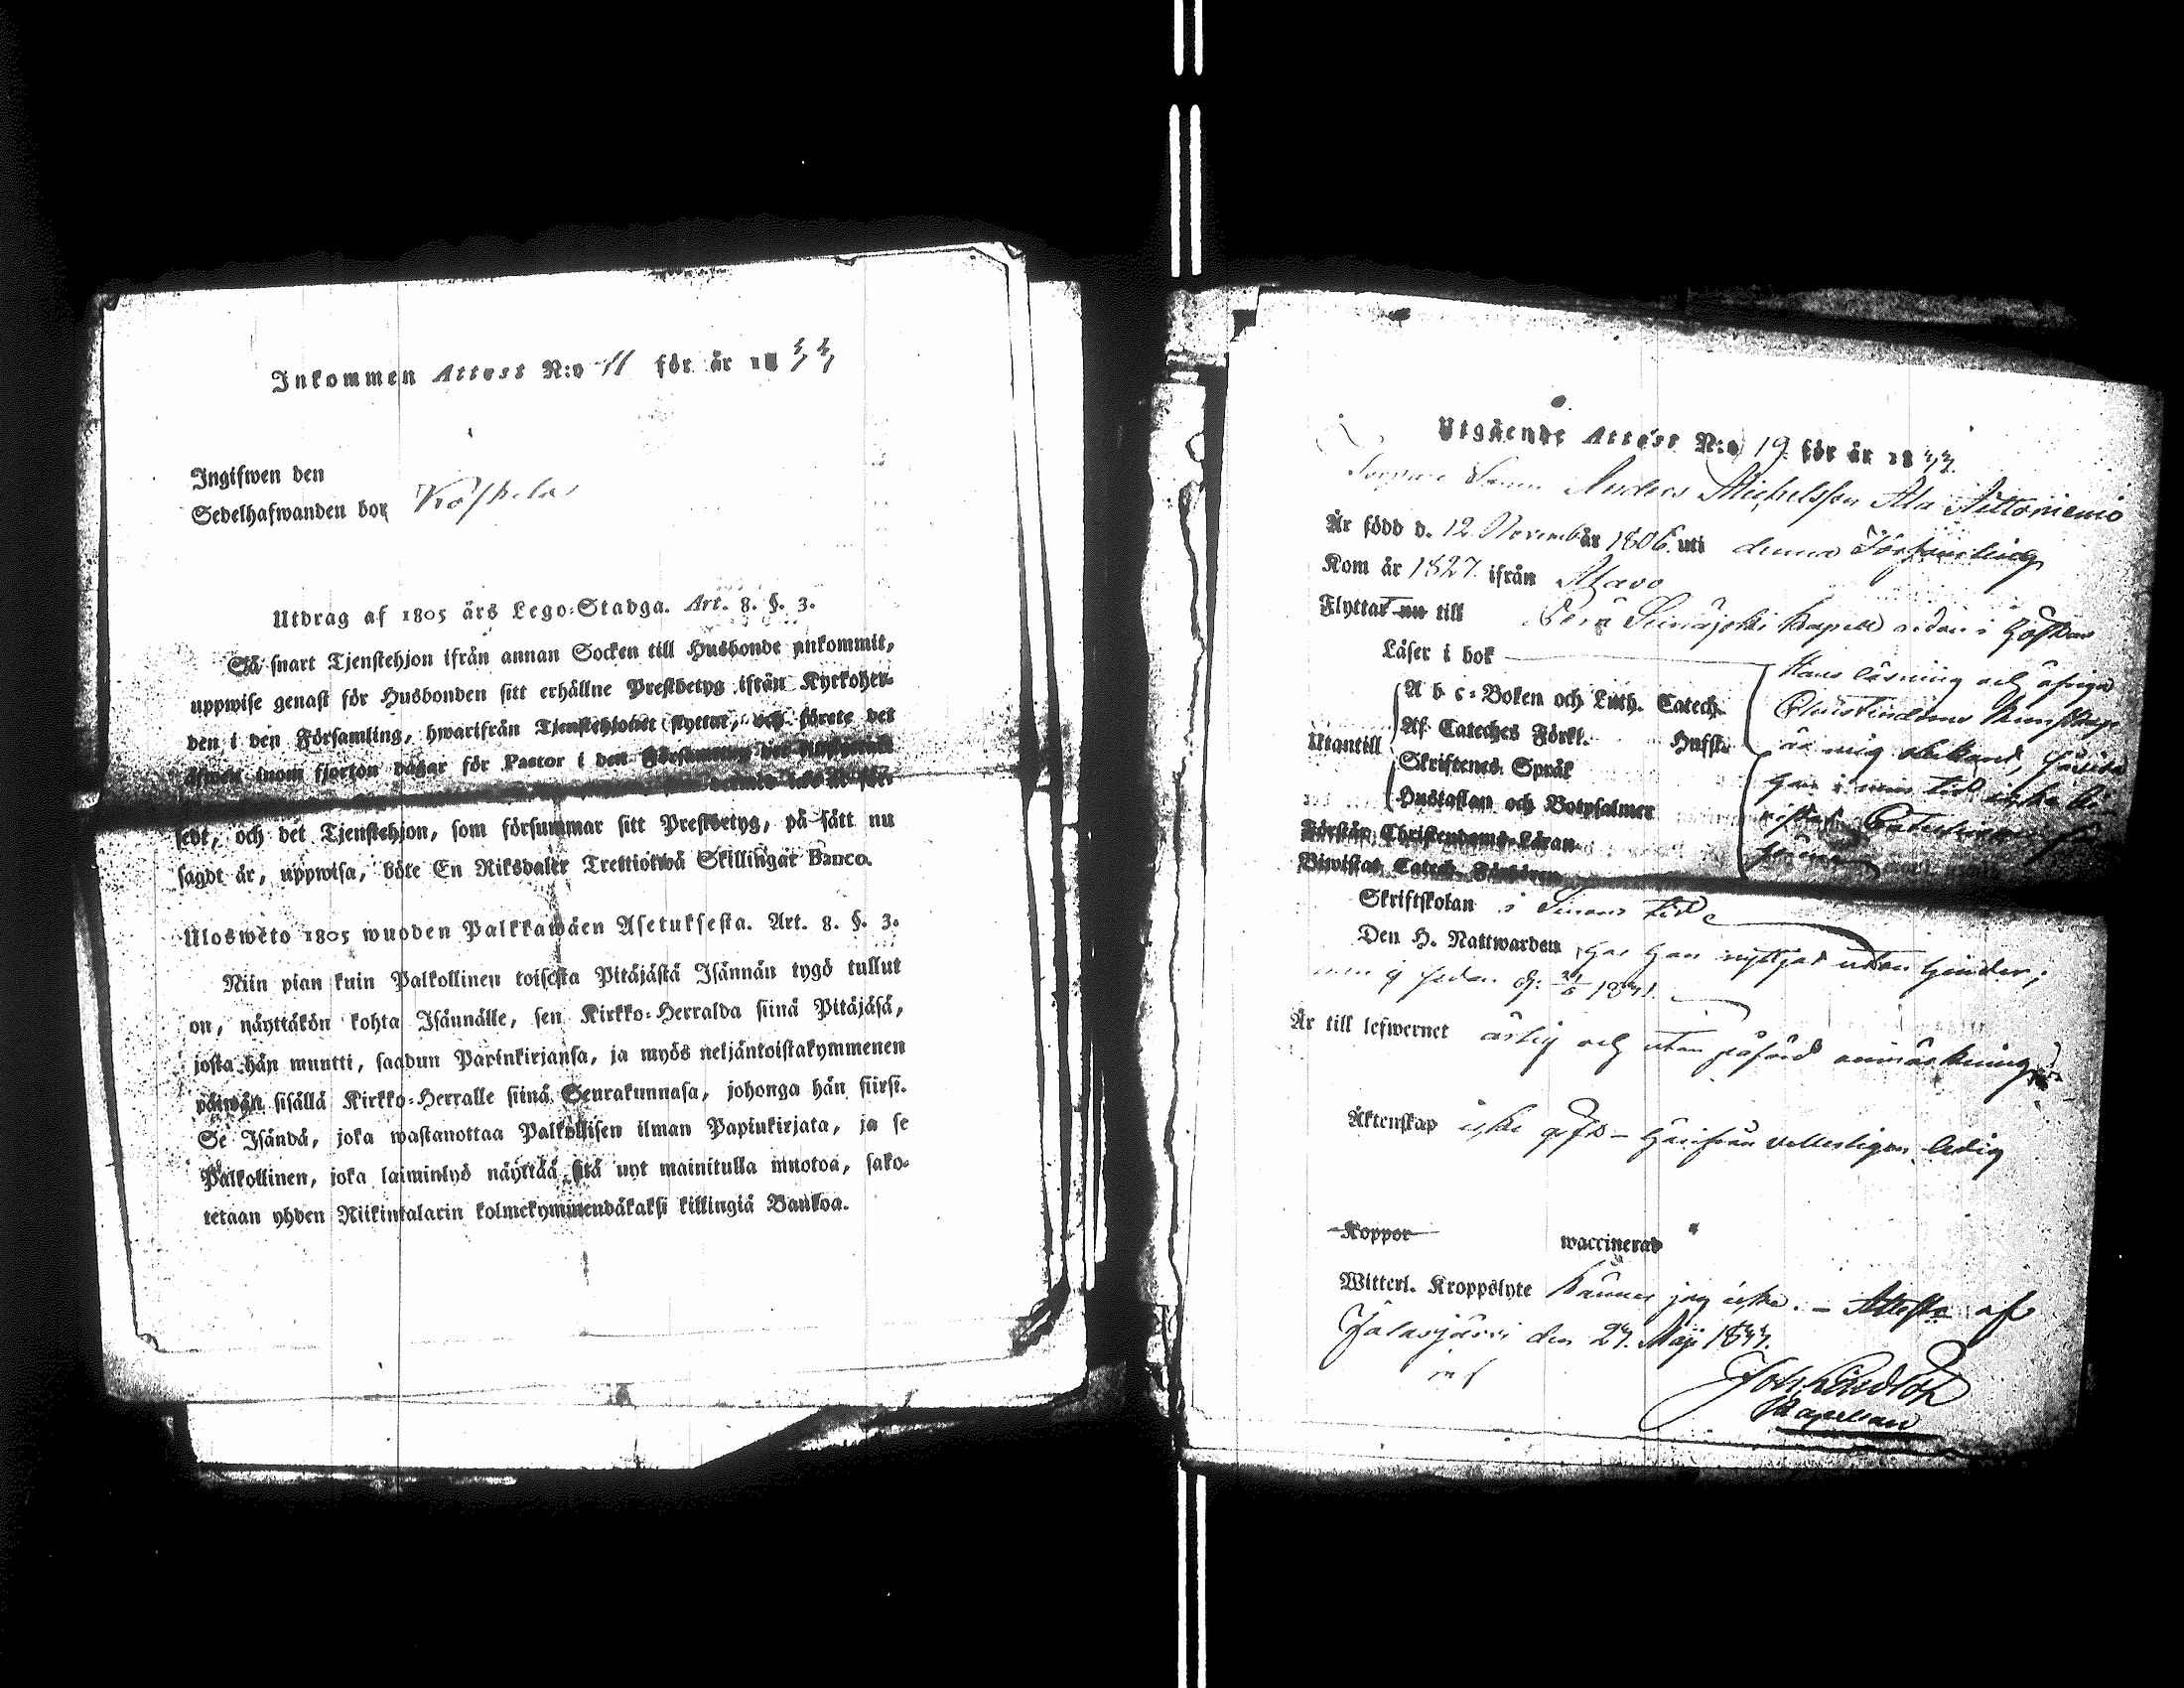 Inkommen Attest N:o 11 för år 1844
Ingifwen den
Sedelhafwanden bor Koskela
Utdrag af 1805 års Lego-Stadga. Art. 8. §. 3.
Så snart Tjenstehjon ifrån annan Socken till Husbonde ankommit,
uppwise genast för Husbonden sitt erhållne Prestbetyg ifrån Kyrkoher-
den i den Församling, hwarifrån Tjenstehjonet flyttat, och förete det
äfwen inom fjorton dagar för Pastor i den
sedt, och det Tjenstehjon, som försummar sitt Prestbetyg, på sätt nu
sagdt är, uppwisa, böte En Riksdaler Trettiotwå Skillingar Banco.
Uloswèto 1805 wuoden Palkkawäen Asetuksesta. Art. 8. §. 3.
Niin pian kuin Palkollinen toisesta Pitäjästä Isännän tygö tullut
on, näyttäkön kohta Isännälle, sen Kirkko-Herralda siinä Pitäjäsä,
josta hän muutti, saadun Papinkirjansa, ja myös neljäntoistakymmenen
päiwän sisällä Kirkko-Herralle siinä Seurakunnasa, johonga hän siirsi.
Se Isändä, joka wastanottaa Palkollisen ilman Papinkirjata, ja se
Palkollinen, joka laiminlyö näyttää sitä nyt mainitulla muotoa, sako-
tetaan yhden Riikintalarin kolmekymmendäkaksi killingiä Bankoa.
Utgående Attest N:o 19 för år 1844.
Anders Michelsson Ala Aittoniemi
Är född d. 12 Novemb år 1806 uti denna Församling
Kom år 1827 ifrån Alavo
Flyttat nu till Perä Seinäjoki Kapell redan i höstas
Läser i bok
Hans läsning och öfriga
A b c-Boken och Luth. Catech.
Christendoms kunskap
Af Cateches Förkl. Husfl.
Utantill
är mig obekant,
Skriftenes Språk
han i min tid icke bi-
Hustaflan och Botpsalmer
wistat
Förstår Christendoms-Läran
Biwistat Catech. Förhören
Skriftskolan i sinom tid
Den H. Nattwarden har han nyttjat utan hinder;
men ej sedan d.
Är till lefwernet ärlig och utan påförd anmärkning
Äktenskap icke gift – härifrån veterligen ledig
Koppor waccinerad
Witterl. Kroppslyte känner jag icke. – Attesta af
Jalasjärvi den 27. Maji 1844.
Joh. Lindlöf
Kapellan